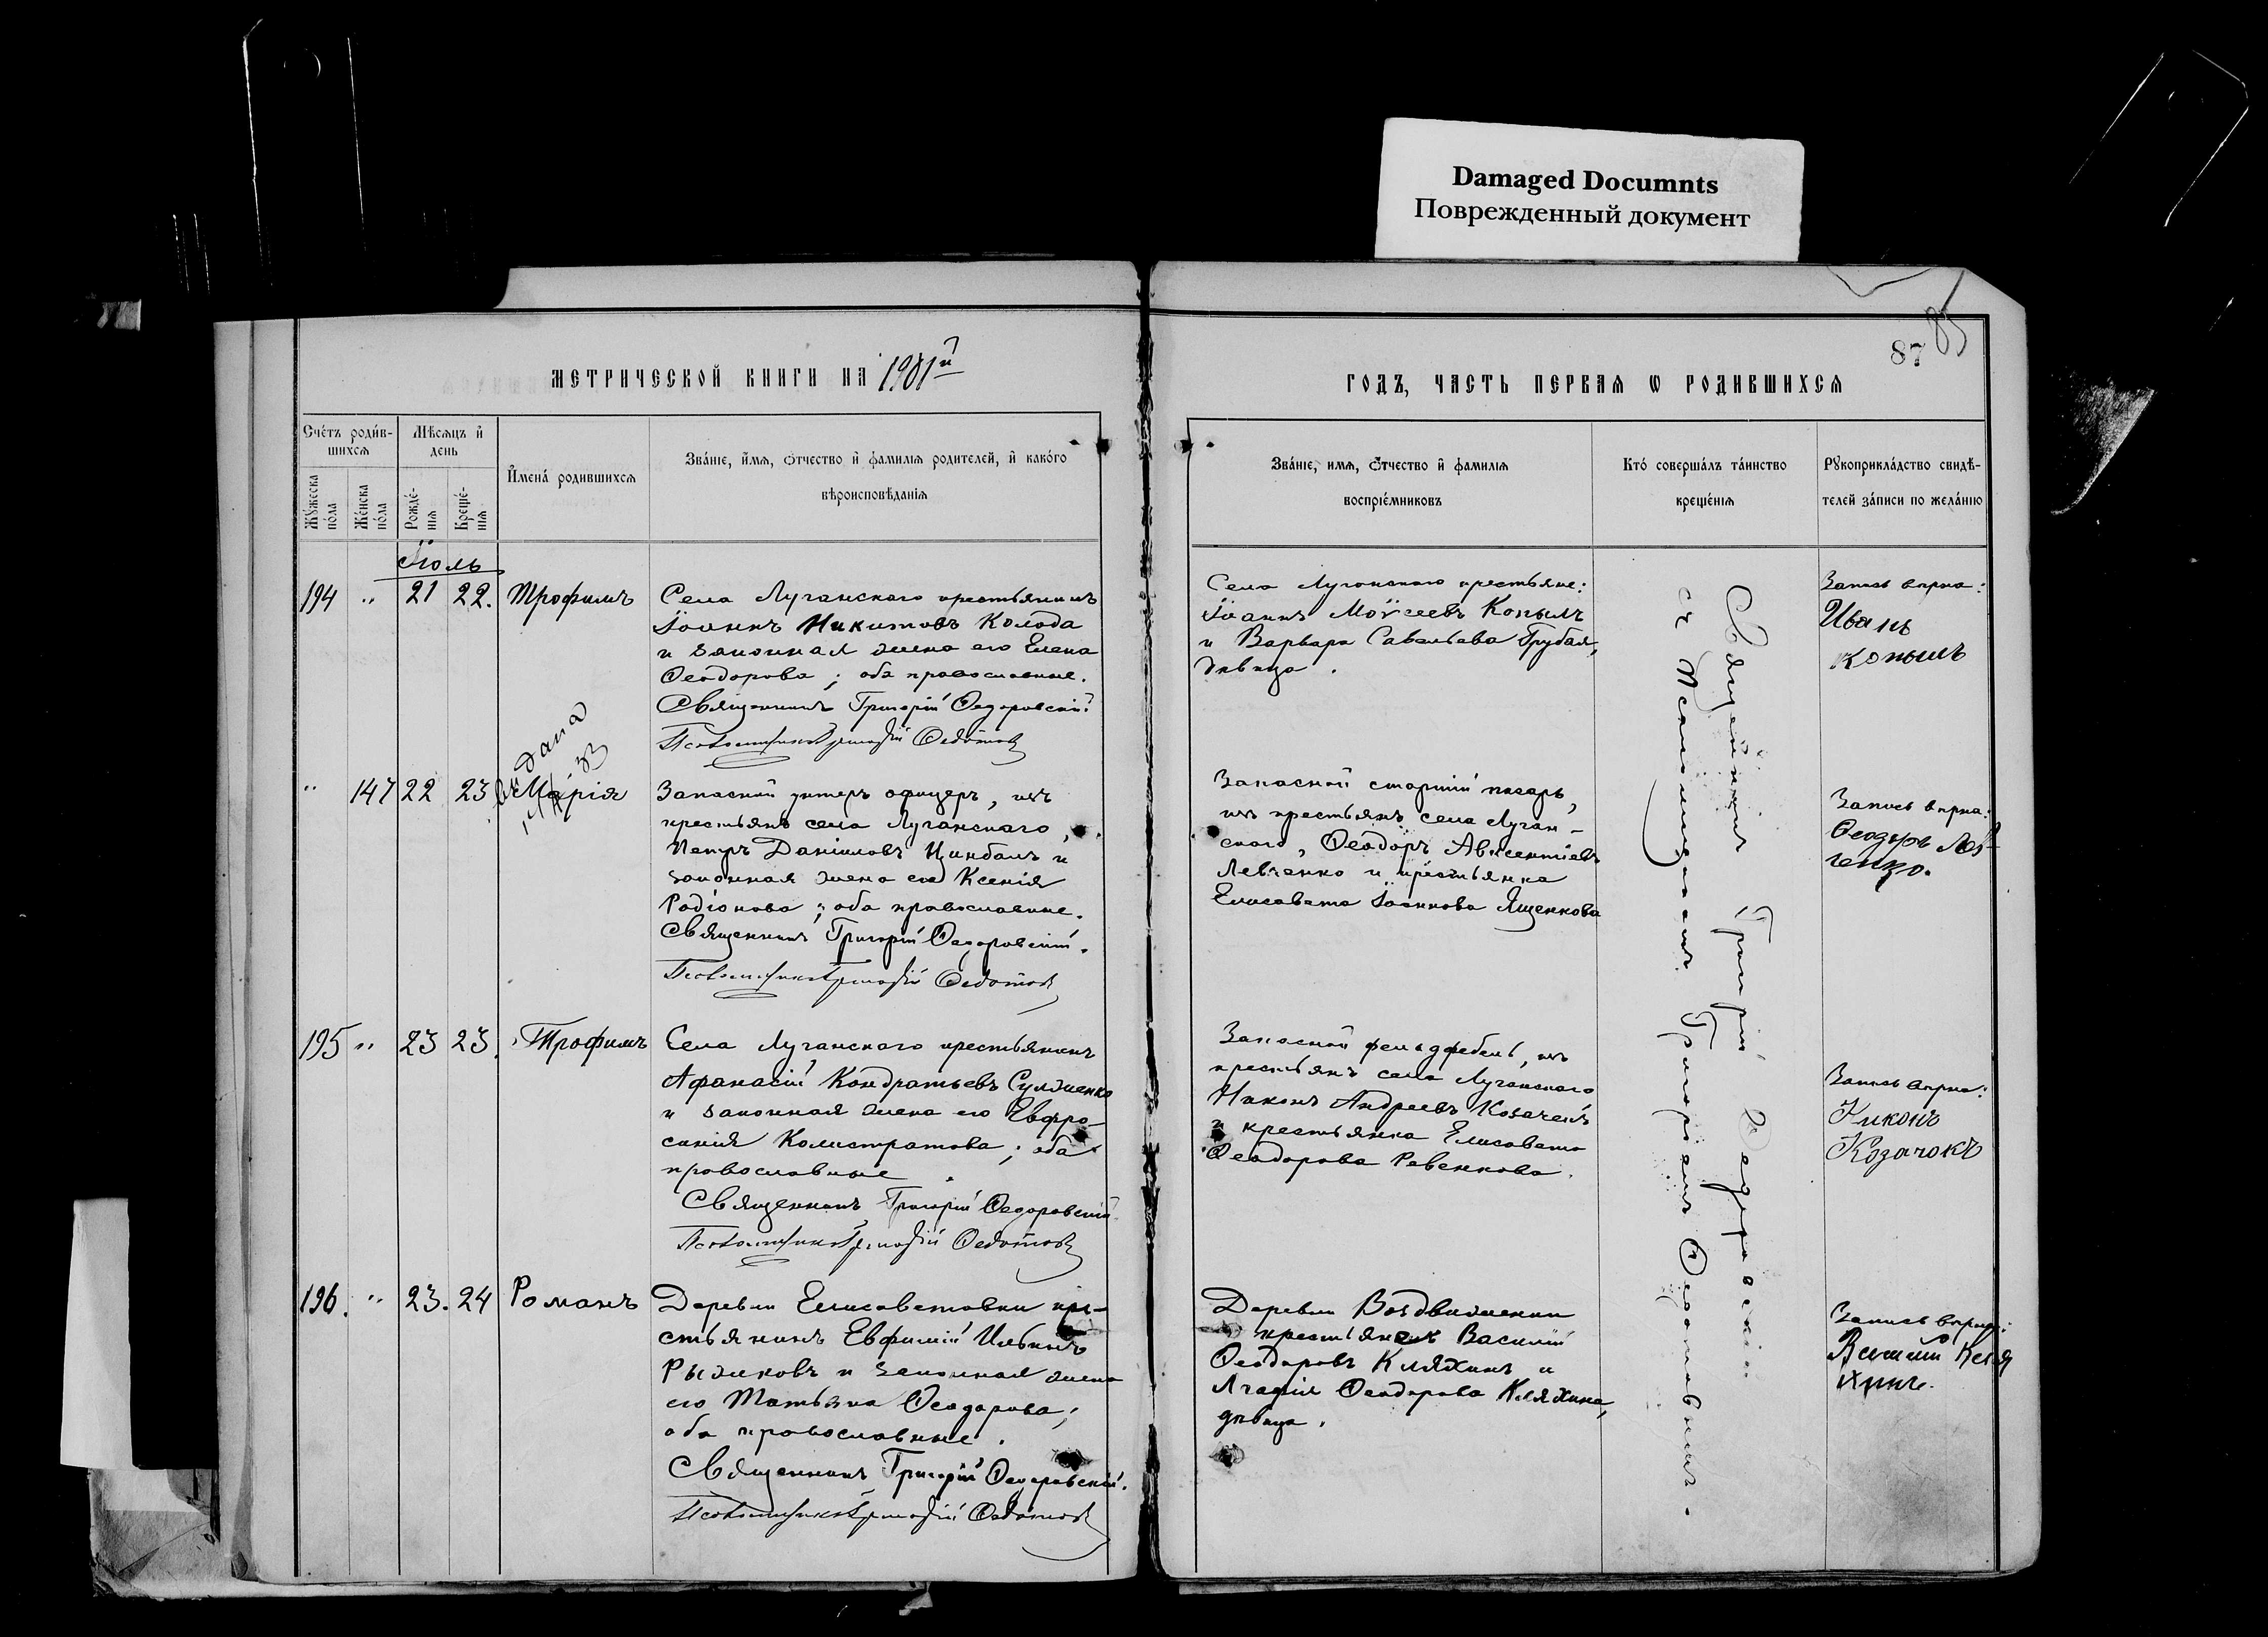 Damaged Documnts
Поврежденный документ
87 85
МЕТРИЧЕСКОЙ КНИГИ НА 1901й
ГОДЪ, ЧАСТЬ ПЕРВАѦ Ѡ РОДИВШИХСѦ
Сче́тъ роди́в-
шихсѧ
Мѣсѧцъ и҆
день
И҆мена́ родившихсѧ
Зва́нїе, и҆́мѧ, ѻ҆́тчество и҆ фамилїѧ родителей, и҆ како́гѡ
вѣроисповѣ́данїѧ
Мꙋ́жеска
по́ла
Же́нска
по́ла
Рожде́-
нїѧ
Креще́-
нїѧ
Зва́нїе, имѧ, ѻ҆́тчество и҆ фамилїѧ
воспрїе́мниковъ
Кто́ совершáлъ та́инство
креще́нїѧ
Рꙋкоприкла́дство свидѣ́-
телей за́писи по жела́нїю
Іюль
194 " 21 22. Трофимъ
Села Луганскаго крестьянинъ
Іоаннъ Никитовъ Колода
и законная жена его Елена
Ѳеодорова; оба православные.
Священникъ Григорій Ѳедоровскій
Псаломщикъ Григорій Ѳедотов
Села Луганскаго крестьяне:
Іоаннъ Моѵсеевъ Копылъ
и Варвара Савельева Грубая,
дѣвица.
Запись вѣрна:
Иванъ
Копылъ
" 147 22 23 Марія
Выдана
Запасный унтеръ офицеръ, изъ
крестьянъ села Луганскаго,
Петръ Даніиловъ Цинбалъ и
законная жена его Ксенія
Родіонова; оба православные.
Священникъ Григорій Ѳедоровскій.
Псаломщикъ Григорій Ѳедотов
Запасной старшій писарь,
изъ крестьянъ села Луган-
скаго, Ѳеодоръ Авксентіевъ
Левченко и крестьянка
Елисавета Іоаннова Ященкова
Запись вѣрна:
Ѳеодоръ Лев-
ченко.
195 " 23 23. Трофимъ
Села Луганскаго крестьянинъ
Аѳанасій Кондратьевъ Сулженко
и законная жена его Евфро-
синія Калистратова; оба
православные.
Священникъ Григорій Ѳедоровскій
Псаломщикъ Григорій Ѳедотов
Запасной фельдфебель, изъ
крестьянъ села Луганскаго
Никонъ Андреевъ Козачекъ
и крестьянка Елисавета
Ѳеодорова Ревенкова.
Запись вѣрна:
Никонъ
Козачокъ
196. " 23. 24 Романъ
Деревни Елисаветовки кре-
стьянинъ Евфимій Ильинъ
Рыжковъ и законная жена
его Татьяна Ѳеодорова;
оба православные.
Священникъ Григорій Ѳедоровскій.
Псаломщикъ Григорій Ѳедотов
Деревни Воздвиженки
крестьянинъ Василій
Ѳеодоровъ Кляхинъ и
Агафія Ѳеодорова Кляхина,
дѣвица.
Запись вѣрна:
Василій Кля
хинъ.
Священникъ Григорій Ѳедоровскій
съ Псаломщикомъ Григоріемъ Ѳедотовымъ.